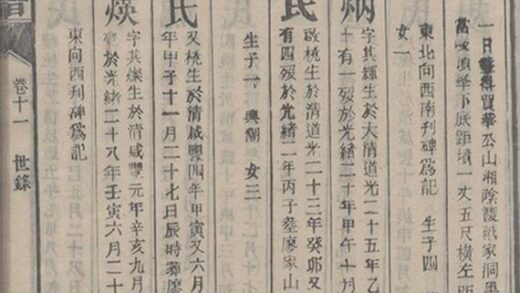 得買華公山湘陰
下底距墳一丈五尺橫左距
東北向西南刊碑爲記 生子四
女一
炳
字其輝生於大清道光二十五年乙
十有一歿於光緒二十年甲午十月
氏
桃生於清道光二十三年癸卯又
有四歿於光緒二年丙子葬廖家山
生子一、興潮 女三
氏
又桃生於清咸豐四年甲寅又六月
年甲子十一月二十七日辰時葬廖
煐
字其燦生於清咸豐元年辛亥九月
於光緒二十八年壬寅六月二十
東向西刊碑爲記
卷十一 世錄